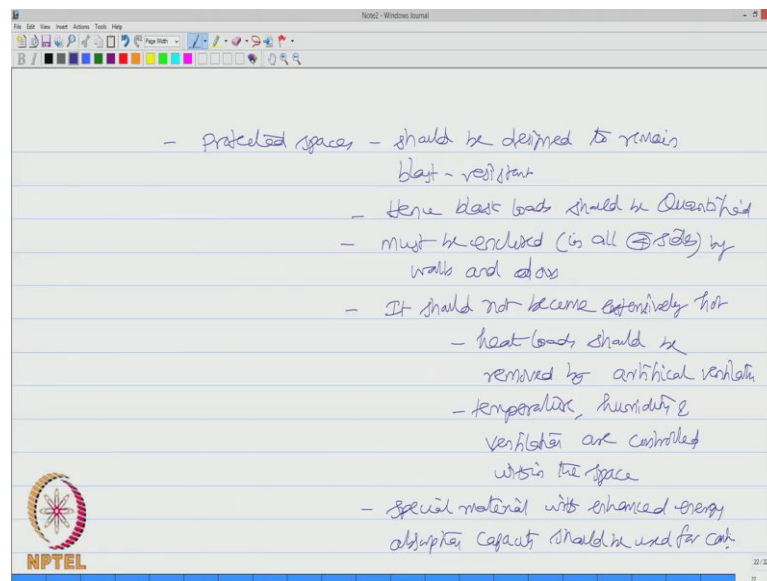 Note2 - Windows Journal
File Edit View Insert Actions Tools Help
Page Width
B I
- protected spaces - should be designed to remain
blast - resistant
- Hence blast loads should be Quantified
- must be enclosed (in all sides) by
walls and doors
- It should not become extensively hot
- heat loads should be
removed by artifical ventilatn
- temperature, humidity &
ventilation are controlled
within the space
- special material with enhanced energy
absorption capacity should be used for
NPTEL
22 / 22
22